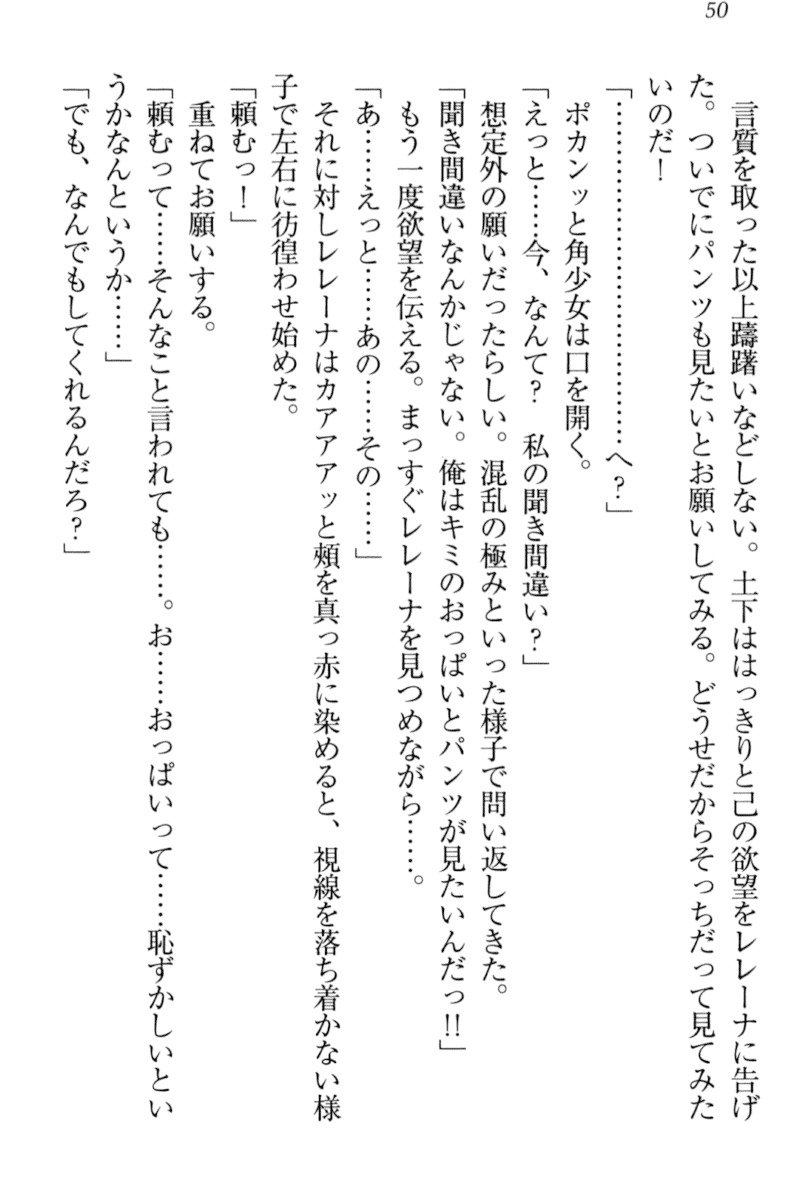 50
言質を取った以上躊躇いなどしない。土下ははっきりと己の欲望をレレーナに告げ
た。ついでにパンツも見たいとお願いしてみる。どうせだからそっちだって見てみた
いのだ！
「……………………………へ？」
ポカンッと角少女は口を開く。
「えっと……今、なんて？　私の聞き間違い？」
想定外の願いだったらしい。混乱の極みといった様子で問い返してきた。
「聞き間違いなんかじゃない。俺はキミのおっぱいとパンツが見たいんだっ!!」
もう一度欲望を伝える。まっすぐレレーナを見つめながら……。
「あ……えっと……あの……その……」
それに対しレレーナはカアアアッと頬を真っ赤に染めると、視線を落ち着かない様
子で左右に彷徨わせ始めた。
「頼むっ！」
重ねてお願いする。
「頼むって……そんなこと言われても……。お……おっぱいって……恥ずかしいとい
うかなんというか……」
「でも、なんでもしてくれるんだろ？」